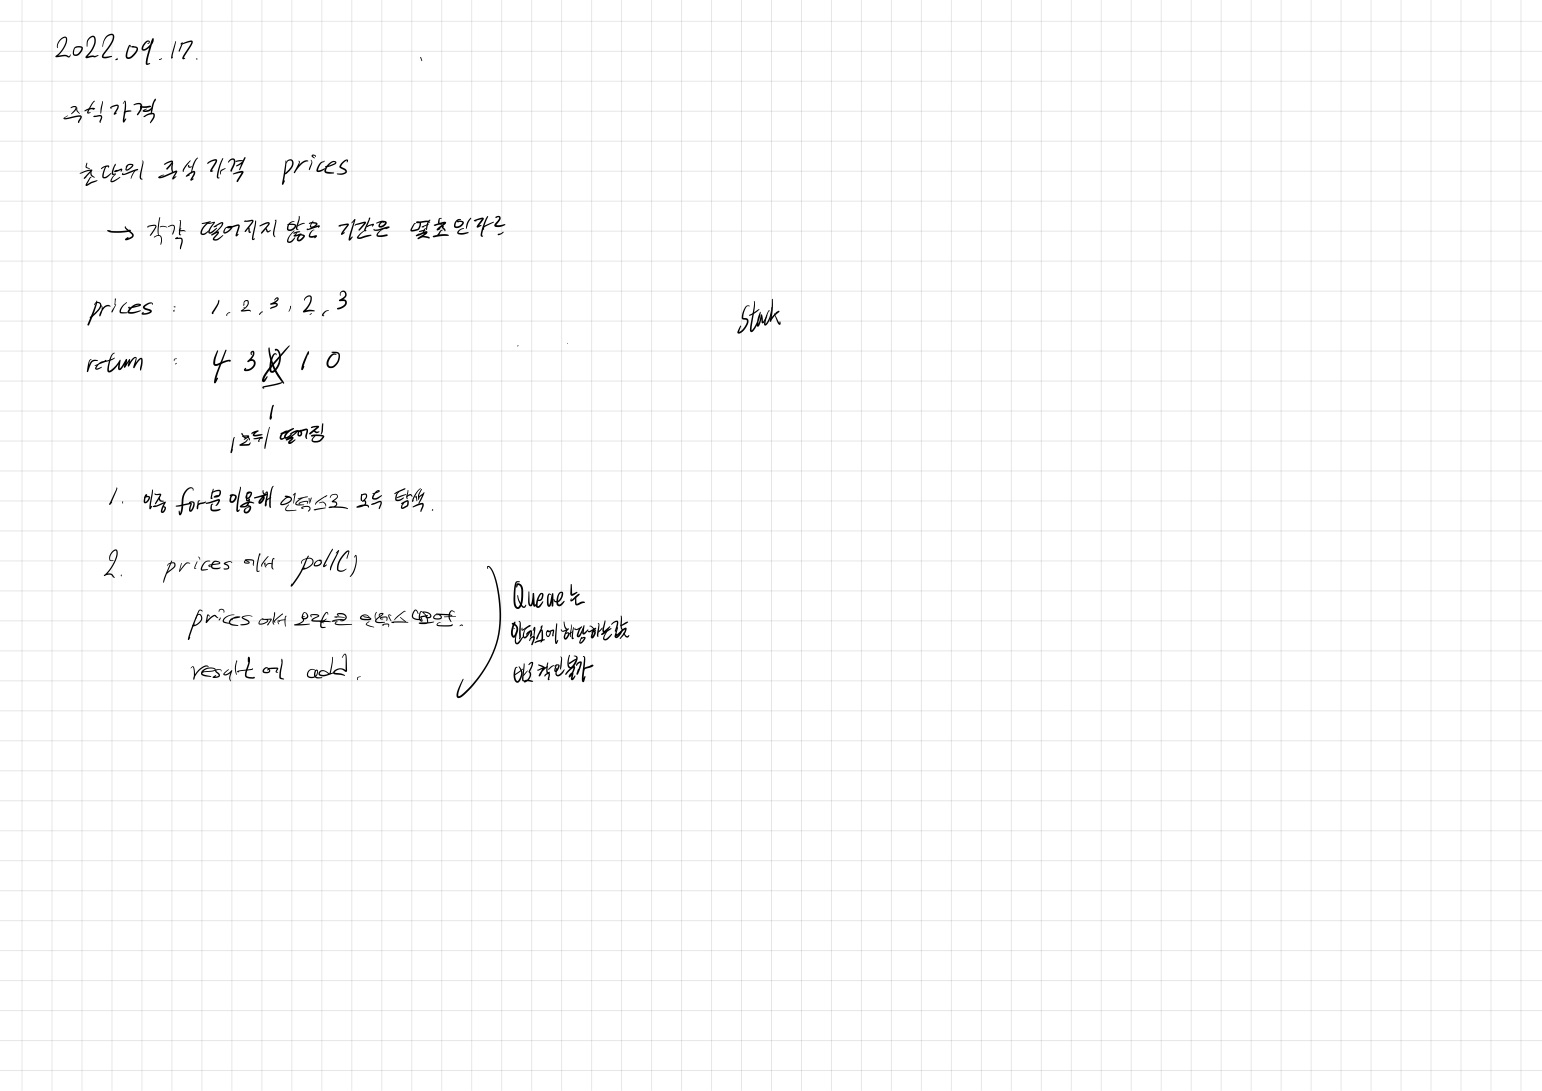 2022.09.17.
주식가격
초단위 주식가격 prices
→ 각각 떨어지지 않은 기간은 몇초인가를
prices : 1, 2, 3, 2, 3
Stack
return : 4 3 0 1 0
1
1초뒤 떨어짐
1. 이중 for문 이용해 인덱스로 모두 탐색.
2. prices에서 poll()
prices에서 인덱스
result에 add.
Queue는
인덱스에 해당하는 값
바로 확인불가